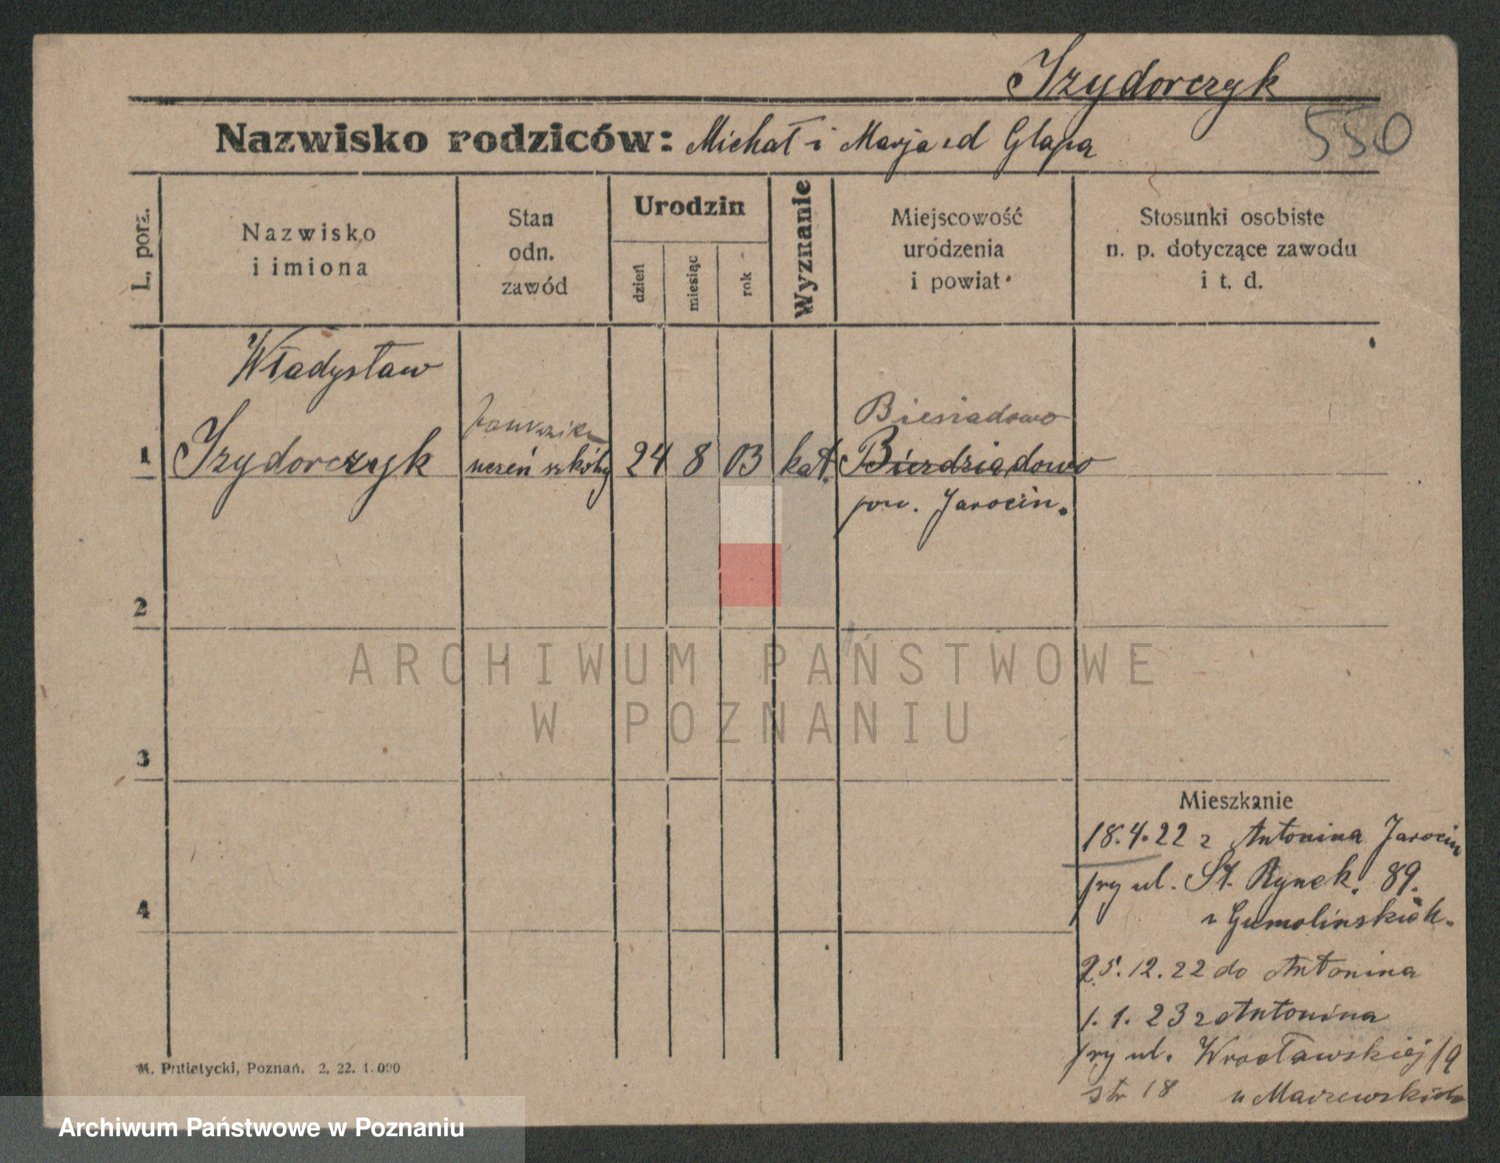 Izydorczyk
Nazwisko rodziców: Michał i Marja zd Glapa
550
L. porz.
Nazwisko
i imiona
Stan
odn.
zawód
Urodzin
dzień
miesiąc
rok
Wyznanie
Miejscowość
urodzenia
i powiat
Stosunki osobiste
n. p. dotyczące zawodu
i t. d.
Władysław
Biesiadowo
1 Izydorczyk uczeń szkóły 24 8 03 kat. Bierdziadowo
pow. Jarocin.
2
3
4
Mieszkanie
18.4.22 z Antonina Jarocin
pry ul. St. Rynek. 89.
u Gumolińskich.
25.12.22 do Antonina
1.1.23 z Antonina
pry ul. Wrocławskiej 19
str 18 u
M. Putiatycki, Poznań. 2. 22. 1.000
ARCHIWUM PAŃSTWOWE
W POZNANIU
Archiwum Państwowe w Poznaniu